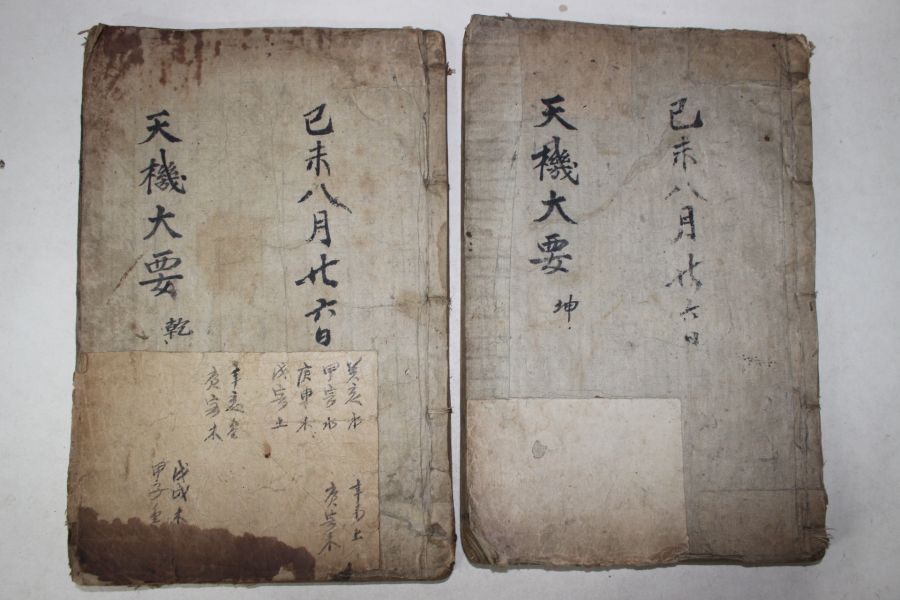 己未八月廿六日
天機大要
乾
癸亥水
甲寅水
庚申木
戊寅土
辛亥金
庚寅木
辛未土
庚寅木
戊戌木
甲子金
己未八月廿六日
天機大要
坤